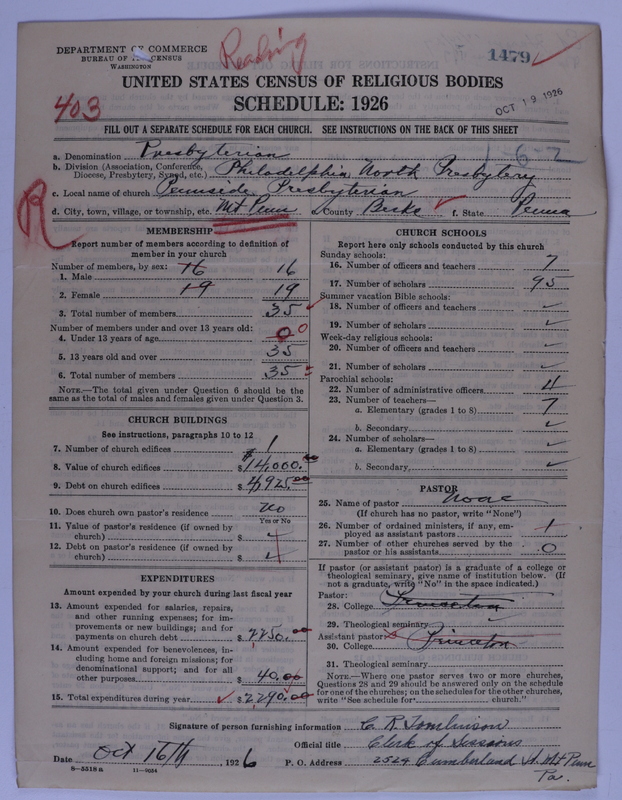 DEPARTMENT OF COMMERCE
BUREAU OF THE CENSUS
WASHINGTON
Reading
1479
UNITED STATES CENSUS OF RELIGIOUS BODIES
403
SCHEDULE: 1926
OCT 19 1926
FILL OUT A SEPARATE SCHEDULE FOR EACH CHURCH. SEE INSTRUCTIONS ON THE BACK OF THIS SHEET
1-6-2
a. Denomination Presbyterian
b. Division (Association, Conference, Diocese, Presbytery, Synod, etc.) Philadelphia North Presbytery
c. Local name of church Pennside Presbyterian
R
d. City, town, village, or township, etc. Mt Penn e. County Berks f. State Penna
MEMBERSHIP
Report number of members according to definition of
member in your church
Number of members, by sex:
1. Male 16 16
2. Female 19 19
3. Total number of members 35
Number of members under and over 13 years old:
4. Under 13 years of age 0 0
5. 13 years old and over 35
6. Total number of members 35
NOTE.—The total given under Question 6 should be the
same as the total of males and females given under Question 3.
CHURCH BUILDINGS
See instructions, paragraphs 10 to 12
7. Number of church edifices 1
8. Value of church edifices $14,000.00
9. Debt on church edifices $4,925.00
10. Does church own pastor's residence no
Yes or No
11. Value of pastor's residence (if owned by
church) $
12. Debt on pastor's residence (if owned by
church) $
EXPENDITURES
Amount expended by your church during last fiscal year
13. Amount expended for salaries, repairs,
and other running expenses; for im-
provements or new buildings; and for
payments on church debt $2250.00
14. Amount expended for benevolences, in-
cluding home and foreign missions; for
denominational support; and for all
other purposes $40.00
15. Total expenditures during year $2,290.00
CHURCH SCHOOLS
Report here only schools conducted by this church
Sunday schools:
16. Number of officers and teachers 7
17. Number of scholars 95
Summer vacation Bible schools:
18. Number of officers and teachers
19. Number of scholars
Week-day religious schools:
20. Number of officers and teachers
21. Number of scholars
Parochial schools:
22. Number of administrative officers
23. Number of teachers—
a. Elementary (grades 1 to 8)
b. Secondary
24. Number of scholars—
a. Elementary (grades 1 to 8)
b. Secondary
PASTOR
25. Name of pastor None
(If church has no pastor, write "None")
26. Number of ordained ministers, if any, em-
ployed as assistant pastors 1
27. Number of other churches served by the
pastor or his assistants 0
If pastor (or assistant pastor) is a graduate of a college or
theological seminary, give name of institution below. (If
not a graduate, write "No" in the space indicated.)
Pastor:
28. College Princeton
29. Theological seminary
Assistant pastor:
30. College Princeton
31. Theological seminary
NOTE.—Where one pastor serves two or more churches,
Questions 28 and 29 should be answered only on the schedule
for one of the churches; on the schedules for the other churches,
write "See schedule for church."
Signature of person furnishing information C. R. Tomlinson
Official title Clerk of Sessions
Date Oct 16th, 1926 P. O. Address 2524 Cumberland St. Mt Penn
Pa.
8—5518 a 11—9034